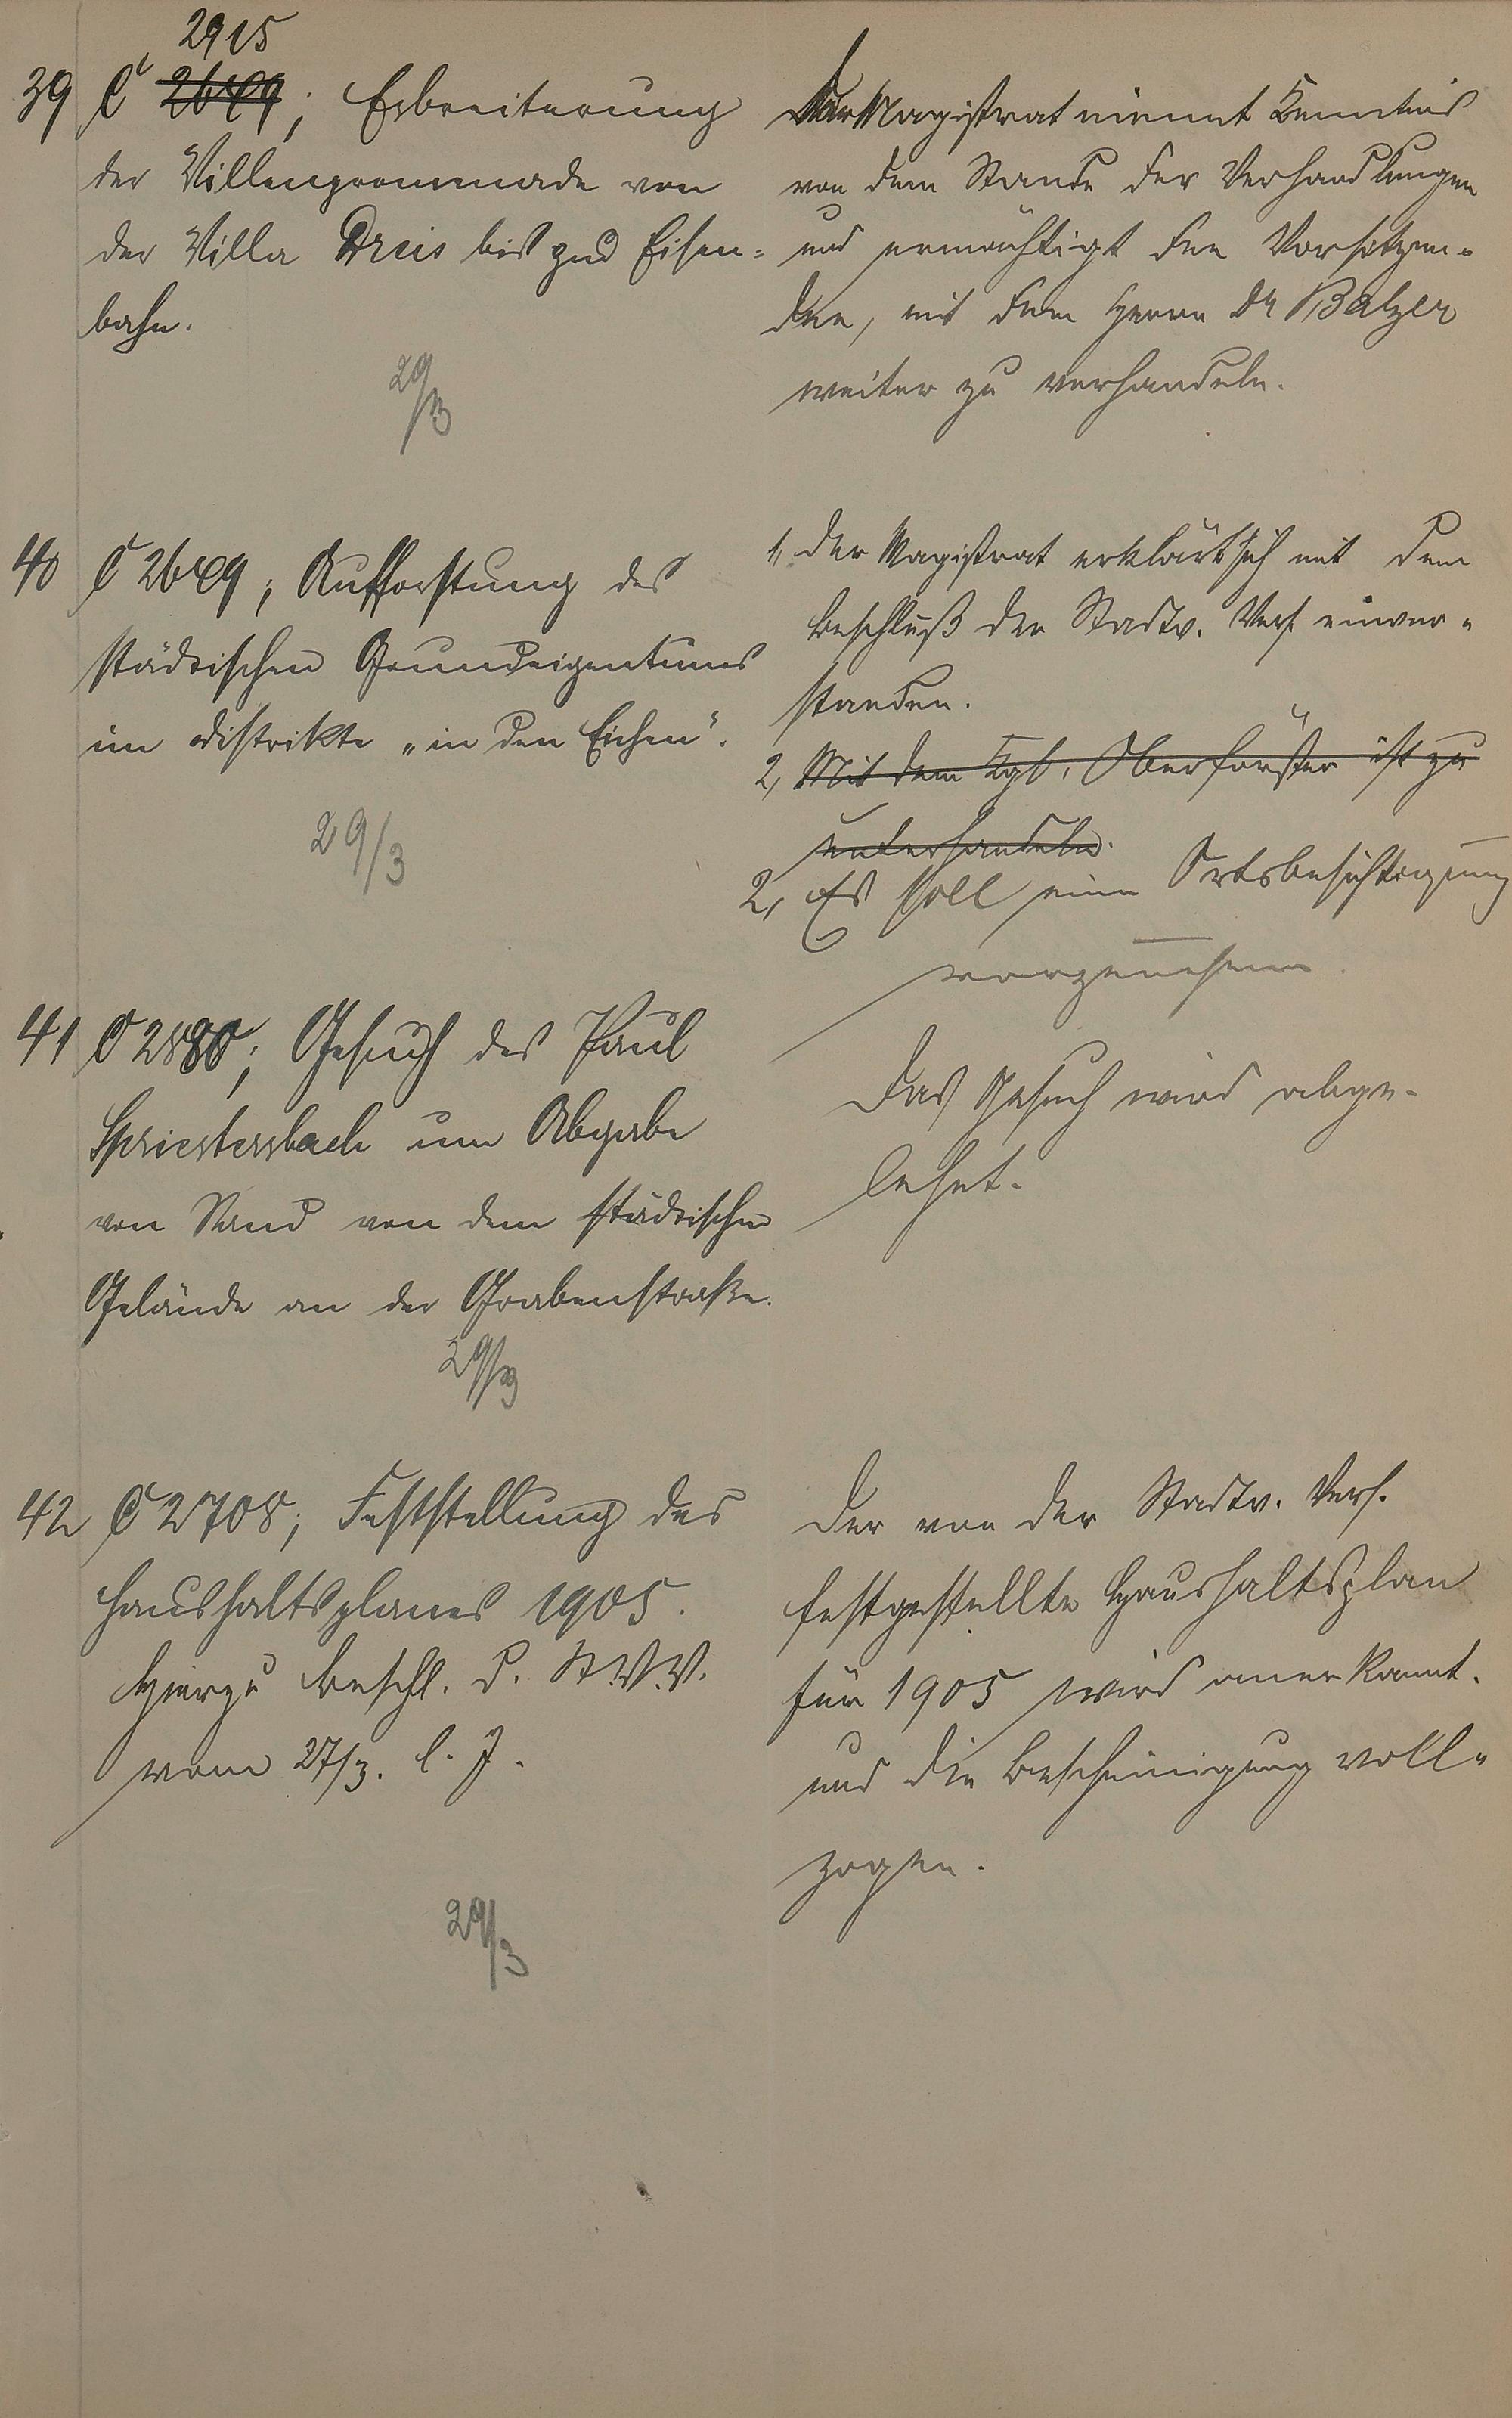 2915
39 C 2649; Erbreiterung
der Villenpromenade von
der Villa Dreis bis zur Eisen=
bahn.
29/3
Der Magistrat nimmt Kenntnis
von dem Stande der Verhandlungen
und ermächtigt den Vorsitzen=
den, mit dem Herrn Dr Balzer
weiter zu verhandeln.
40 C 2649; Aufforstung des
städtischen Grundeigentums
im Distrikte „in den Eichen".
29/3
1, Der Magistrat erklärt sich mit dem
Beschluß der Stadtv. Vers. einver=
standen.
2, Mit dem Kgl. Oberförster ist zu
unterhandeln.
2, Es soll eine Ortsbesichtigung
vorgenehmen
41 C 2880; Gesuch des Paul
Spriestersbach um Abgabe
von Sand von dem städtischen
Gelände an der Grabenstraße.
29/3
Das Gesuch wird abge-
lehnt.
42 C 2708; Feststellung des
Haushaltsplanes 1905.
Hierzu Beschl. d. St.V.V.
vom 27/3. l. J.
29/3
Der von der Stadtv. Vers.
festgestellte Haushaltsplan
für 1905 wird anerkannt.
und die Bescheinigung voll=
zogen.